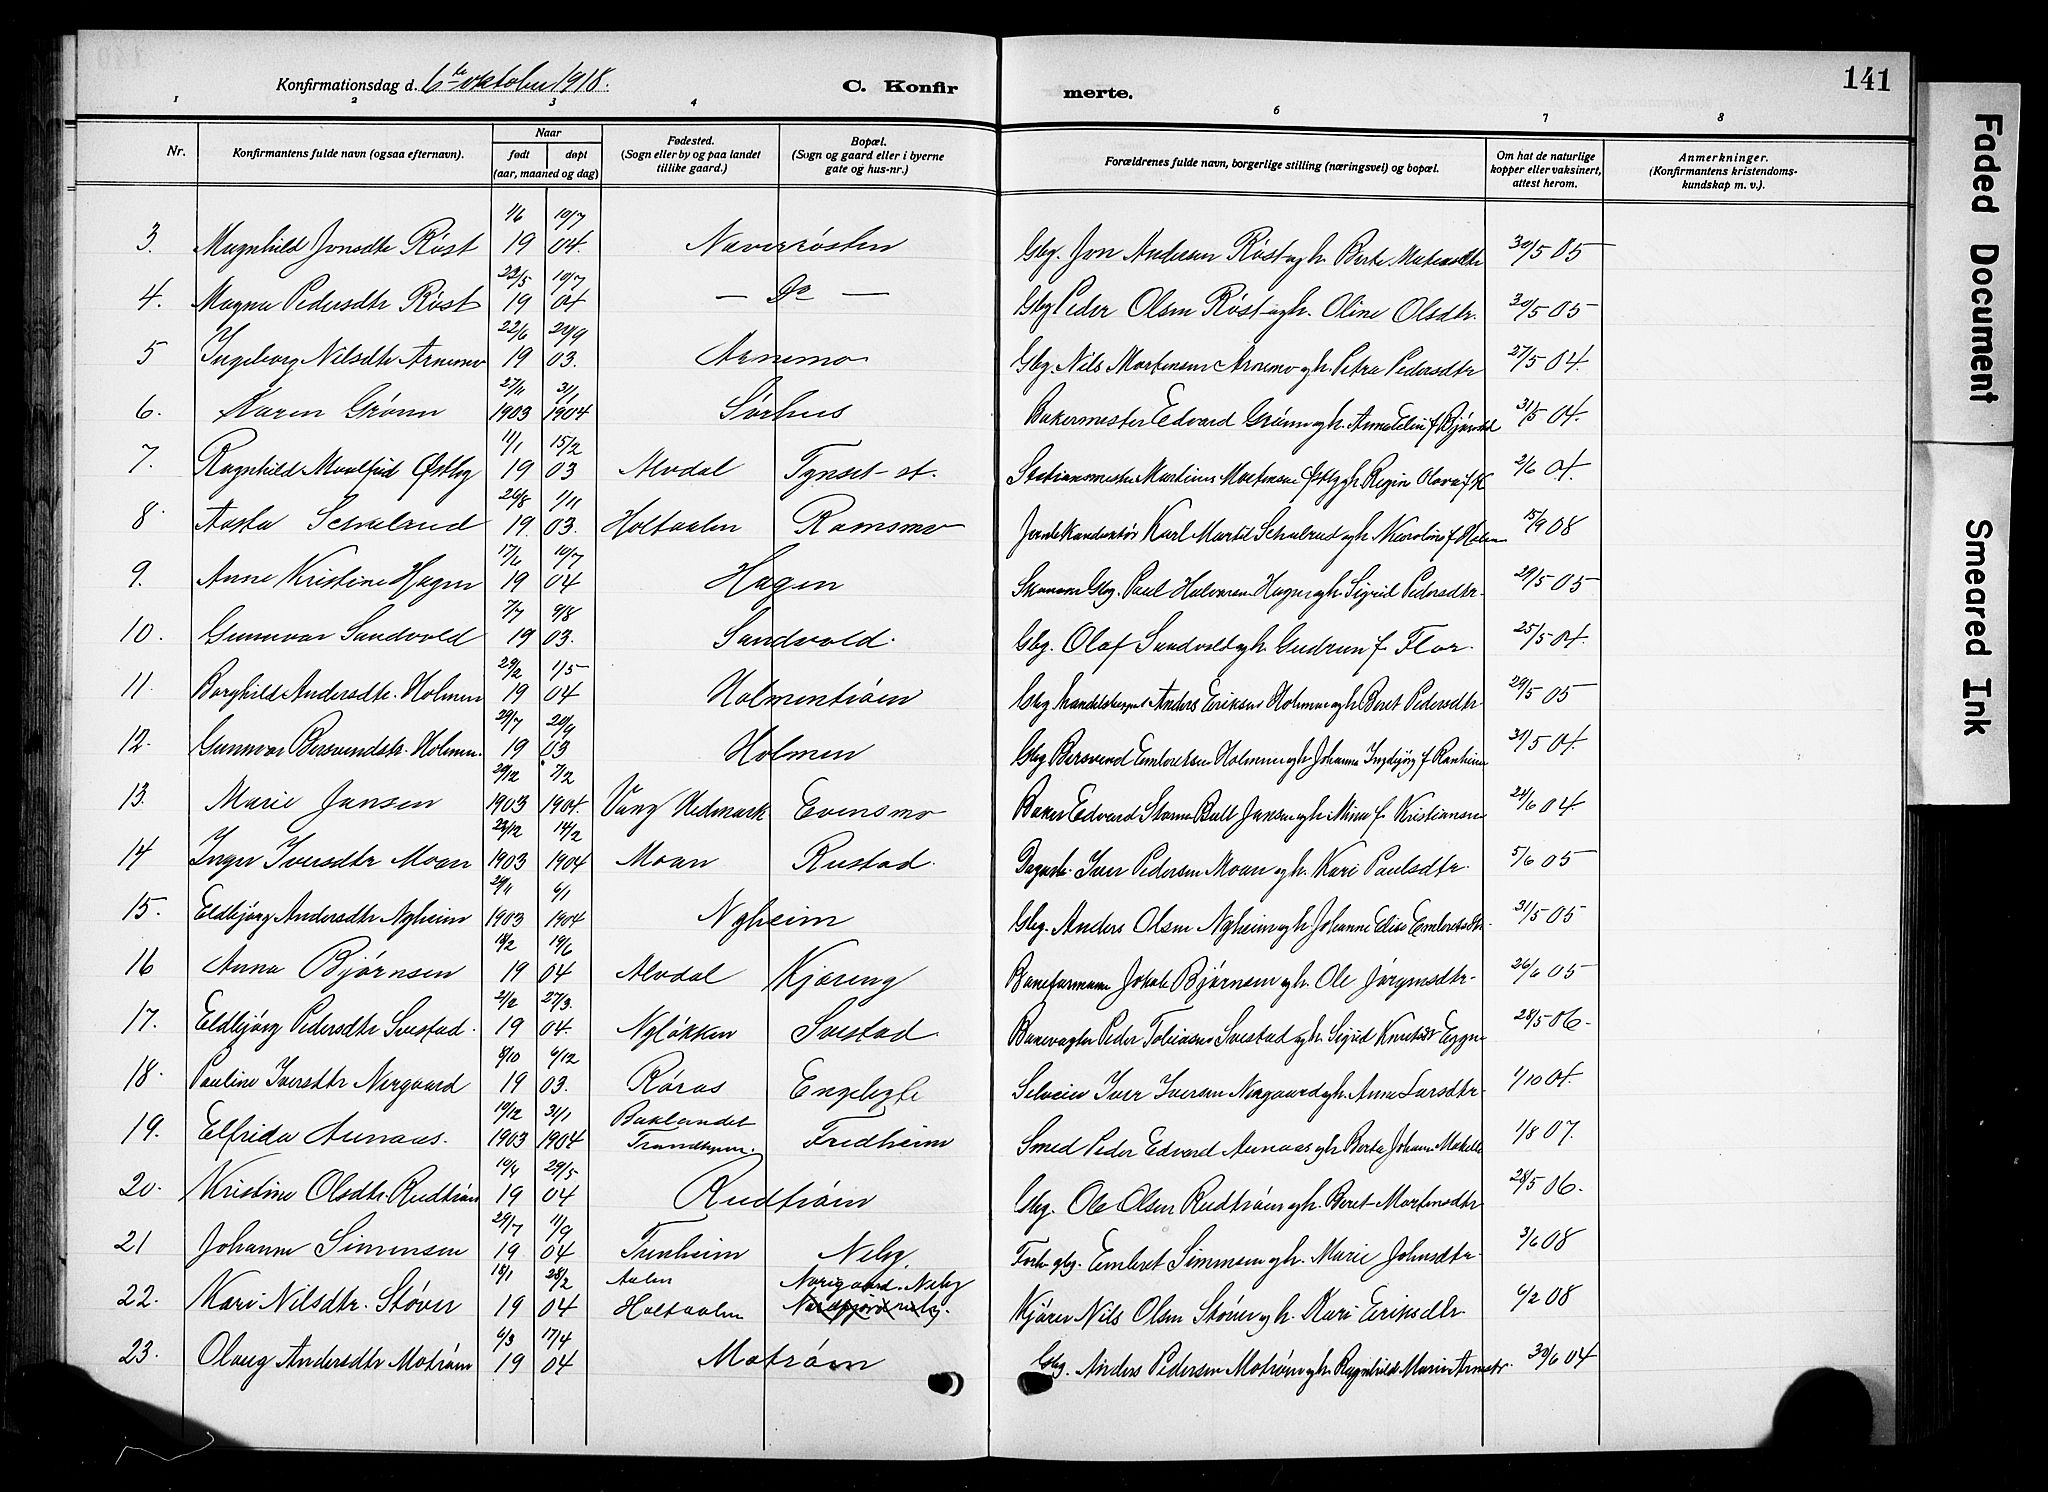 Konfirmationsdag d. 6te oktober 1918.
C. Konfirmerte.
141
1 2 3 4 6 7 8
Nr.
Konfirmantens fulde navn (ogsaa efternavn).
Naar
født døpt
(aar, maaned og dag)
Fødested.
(Sogn eller by og paa landet
tillike gaard.)
Bopæl.
(Sogn og gaard eller i byerne
gate og hus-nr.)
Forældrenes fulde navn, borgerlige stilling (næringsvei) og bopæl.
Om hat de naturlige
kopper eller vaksinert,
attest herom.
Anmerkninger.
(Konfirmantens kristendoms-
kundskap m. v.).
3. Magnhild Jonsdtr Røst 1/6 19 10/7 04. Naverrøsten Gbg. Jon Andersen Røst og h. Berte 30/5 05
4. Magna Pedersdtr Røst 23/5 19 10/7 04 — Do — Gbg Peder Olsen Røst og h. Oline Olsdtr. 30/5 05
5 Ingeborg Nilsdtr Arnemo 22/6 19 20/9 03. Arnemo Gbg. Nils Mortensen Arnemo og h. Petra Pedersdtr 27/5 04.
6. Karen Grønn 27/11 1903 31/1 1904 Sørhus Bakermester Edvard Grønn og h. 31/5 04.
7. Ragnhild Maalfrid Østby 11/1 19 15/2 03 Alvdal Tynset st. Stationsmester Martinius Mortensen Østby og h. Regine Olava f. 2/6 04.
8. Aasta Schulrud 26/8 19. 1/11 03. Holtaalen Ramsmo Karl Martil Schulrud og h. f. Holen 15/9 08
9. Anne Kristine Hagen 17/6 19 10/7 04 Hagen Gbg. Paul Halvorsen Hagen og h. Sigrid Pedersdtr. 29/5 05
10. Gunnvor Sandvold 7/7 19 9/8 03. Sandvold. Gbg. Olaf Sandvold og h. Gudrun f. Flor. 25/5 04.
11. Borghild Andersdtr. Holmen 29/2 19 1/5 04 Holmentrøen Gbg Anders Eriksen Holmen og h. Beret Pedersdtr 29/5 05
12. Gunnvor Bersvendstr. Holmen. 29/7 19 20/9 03 Holmen Gbg Bersvend Embretsen Holmen og h. Johanna Ingebjørg f. Ranheim 31/5 04.
13. Marie Jansen 20/12 1903 7/2 1904. Vang Hedmark Evensmo Baker Edvard Storm Bull Jansen og h. Mina f. Kristiansen 24/6 04.
14 Inger Iversdtr Moan 23/12 1903 14/2 1904 Moan Rustad. Dagarb. Iver Pedersen Moan og h. Kari Paulsdtr. 5/6 05
15. Eldbjørg Andersdtr Nyheim 29/11 1903 6/1 1904 Nyheim Gbg. Anders Olsen Nyheim og h. Johanne Elise Embretsdtr. 31/5 05
16 Anna Bjørnsen 18/2 19 19/6 04 Alvdal Kjæreng Baneformann Jakob Bjørnsen og h. Ole Jørgensdtr. 26/6 05
17. Eldbjørg Pedersdtr Svestad. 21/2 19 27/3. 04. Nyløkken Svestad Banevagter Peder Tobiasen Svestad og h. Sigrid Knutsdtr Eggen 28/5 06.
18. Pauline Iversdtr Nergaard 8/10 19 6/12 03. Røros Engebyte Selveier Iver Iversen Nergaard og h. Anne Larsdtr. 1/10 04.
19. Elfrida Aunaas. 19/12 1903 31/1 1904 Baklandet Trondhjem. Fredheim Smed Peder Edvard Aunaas og h. Berta Johanne 1/8 07.
20. Kristine Olsdtr. Rudtrøen 10/4 19 29/5 04 Rudtrøen Gbg. Ole Olsen Rudtrøen og h. Beret Mortensdtr 28/5 06.
21 Johanne Simensen 29/7 19. 11/9 04. Tunheim Neby. Forh. gbg. Embret Simensen og h. Marie Johnsdtr. 3/6 08
22. Kari Nilsdtr. Støver 18/1 19 28/2 04 Aalen Holtaalen Norigaard Neby Kjører Nils Olsen Støver og h. Kari Eriksdtr 6/2 08
23. Olaug Andersdtr Motrøen 6/3 19 17/4 04 Motrøen Gbg. Anders Pedersen Motrøen og h. Ragnhild Marie Arnesdtr. 30/6 04
Faded Document
Smeared Ink